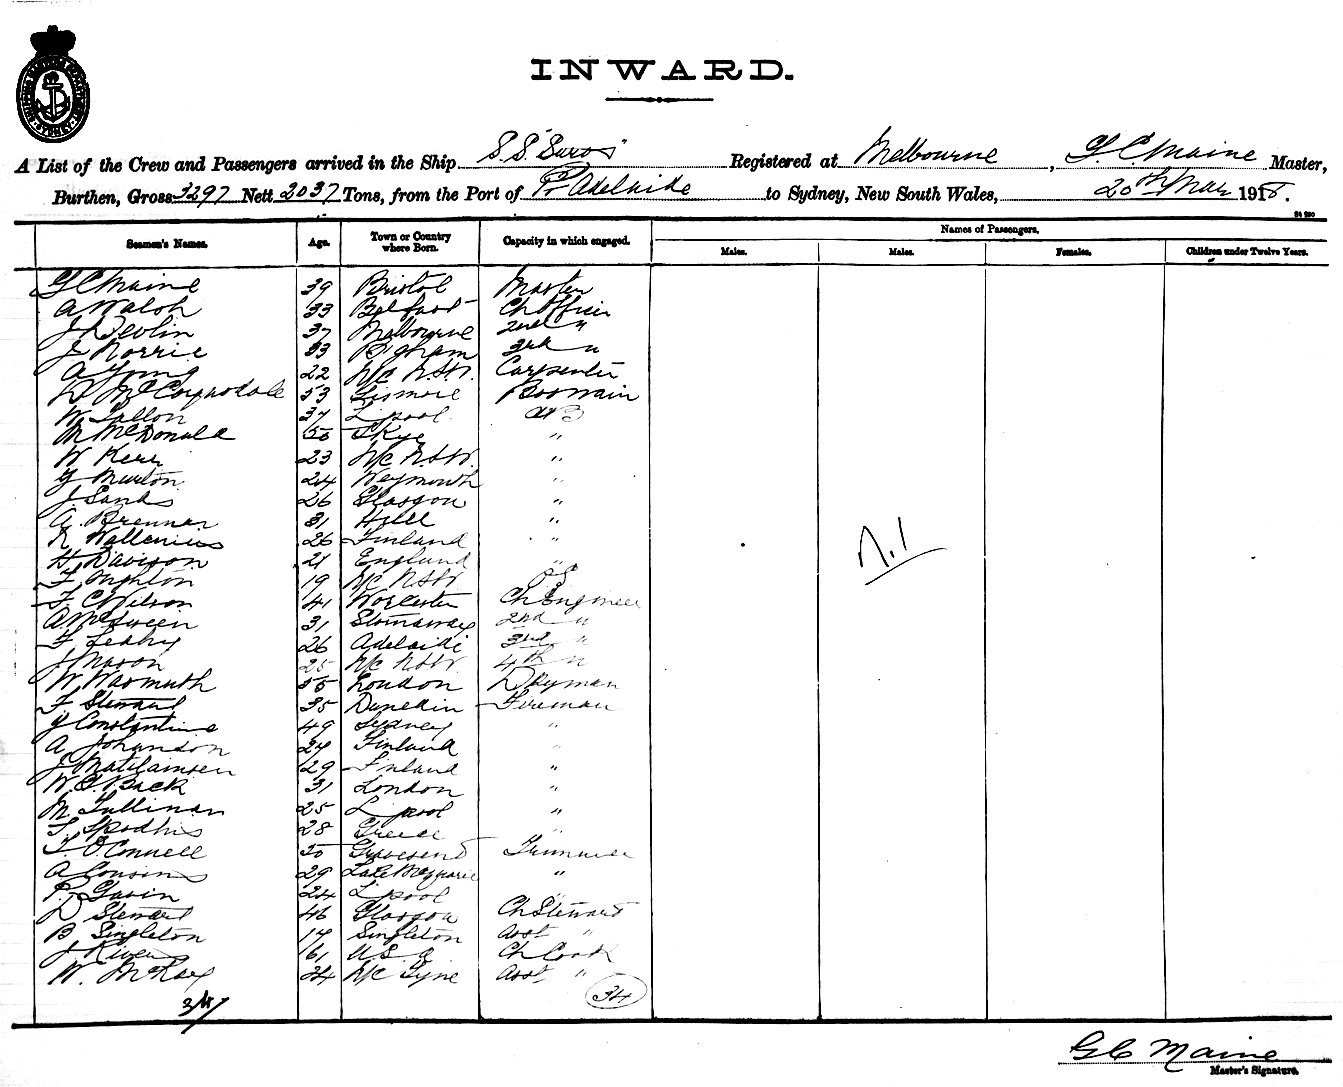 INWARD.
A List of the Crew and Passengers arrived in the Ship S.S. Registered at Melbourne, G. C. Maine Master,
Burthen, Gross 3297 Nett 2037 Tons, from the Port of Pt Adelaide to Sydney, New South Wales, 20th Mar 1918.
Seamen's Names. Age. Town or Country where Born. Capacity in which engaged. Names of Passengers.
Males. Males. Females. Children under Twelve Years.
G C Maine 39 Bristol Master
A Walsh 33 Belfast Ch Officer
J Devlin 37 Melbourne 2nd "
J Norrie 33 3rd "
A Young 22 N/c N.S.W. Carpenter
D McCorquodale 53 Lismore Boswain
W. Fallon 37 L'pool AB
M McDonald 50 Skye "
W Kerr 23 N/c N.S.W. "
G Murton 24 Weymouth "
J Sands 26 Glasgow "
A. Brennan 31 Hull "
R Wallenius 26 Finland "
H Davison 21 England "
F 19 N/c NSW
F. C Wilson 41 Worcester Ch Engineer
A. McSween 31 Stornaway 2nd "
F Leahy 26 Adelaide 3rd "
J Mason 25 N/c NSW 4th "
W Warmuth 55 London Dkyman
F Stewart 35 Dunedin Fireman
G Constantine 49 Sydney "
A Johanson 24 Finland "
J Matilainsen 29 Finland "
W. G Back 31 London "
M Sullivan 25 L'pool "
S. 28 Greece "
T. O'Connell 50 Gravesend Trimmer
A Cousins 29 Lake Macquarie "
P. Gavin 24 L'pool "
D Stewart 46 Glasgow Ch Steward
B Singleton 17 Singleton Asst "
J Rivers 61 U S A Ch Cook
W. McKay 24 N/c Tyne Asst "
34
34
Nil
G C Maine
Master's Signature.